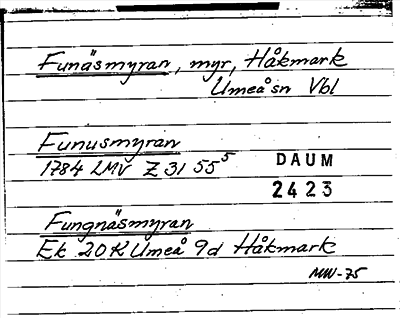 Funäsmyran, myr, Håkmark
Umeåsn Vbl
Funusmyran
1784 LMV Z 31 55⁵
DAUM
2423
Fungnäsmyran
Ek 20K Umeå 9d Håkmark
MW-75